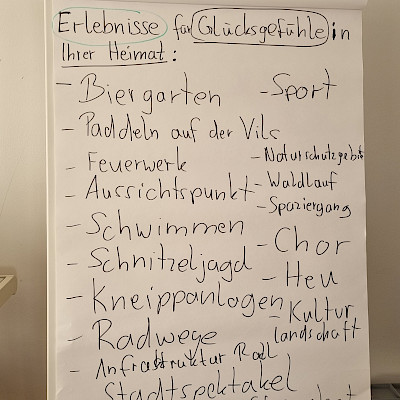 Erlebnisse für Glücksgefühle in
Ihrer Heimat:
- Biergarten
- Sport
- Paddeln auf der Vils
- Feuerwerk
- Naturschutzgebiet
- Aussichtspunkt
- Waldlauf
- Spaziergang
- Schwimmen
- Chor
- Schnitzeljagd
- Heu
- Kneippanlagen
- Kultur
landschaft
- Radwege
- Infrastruktur Rad
Stadtspektakel